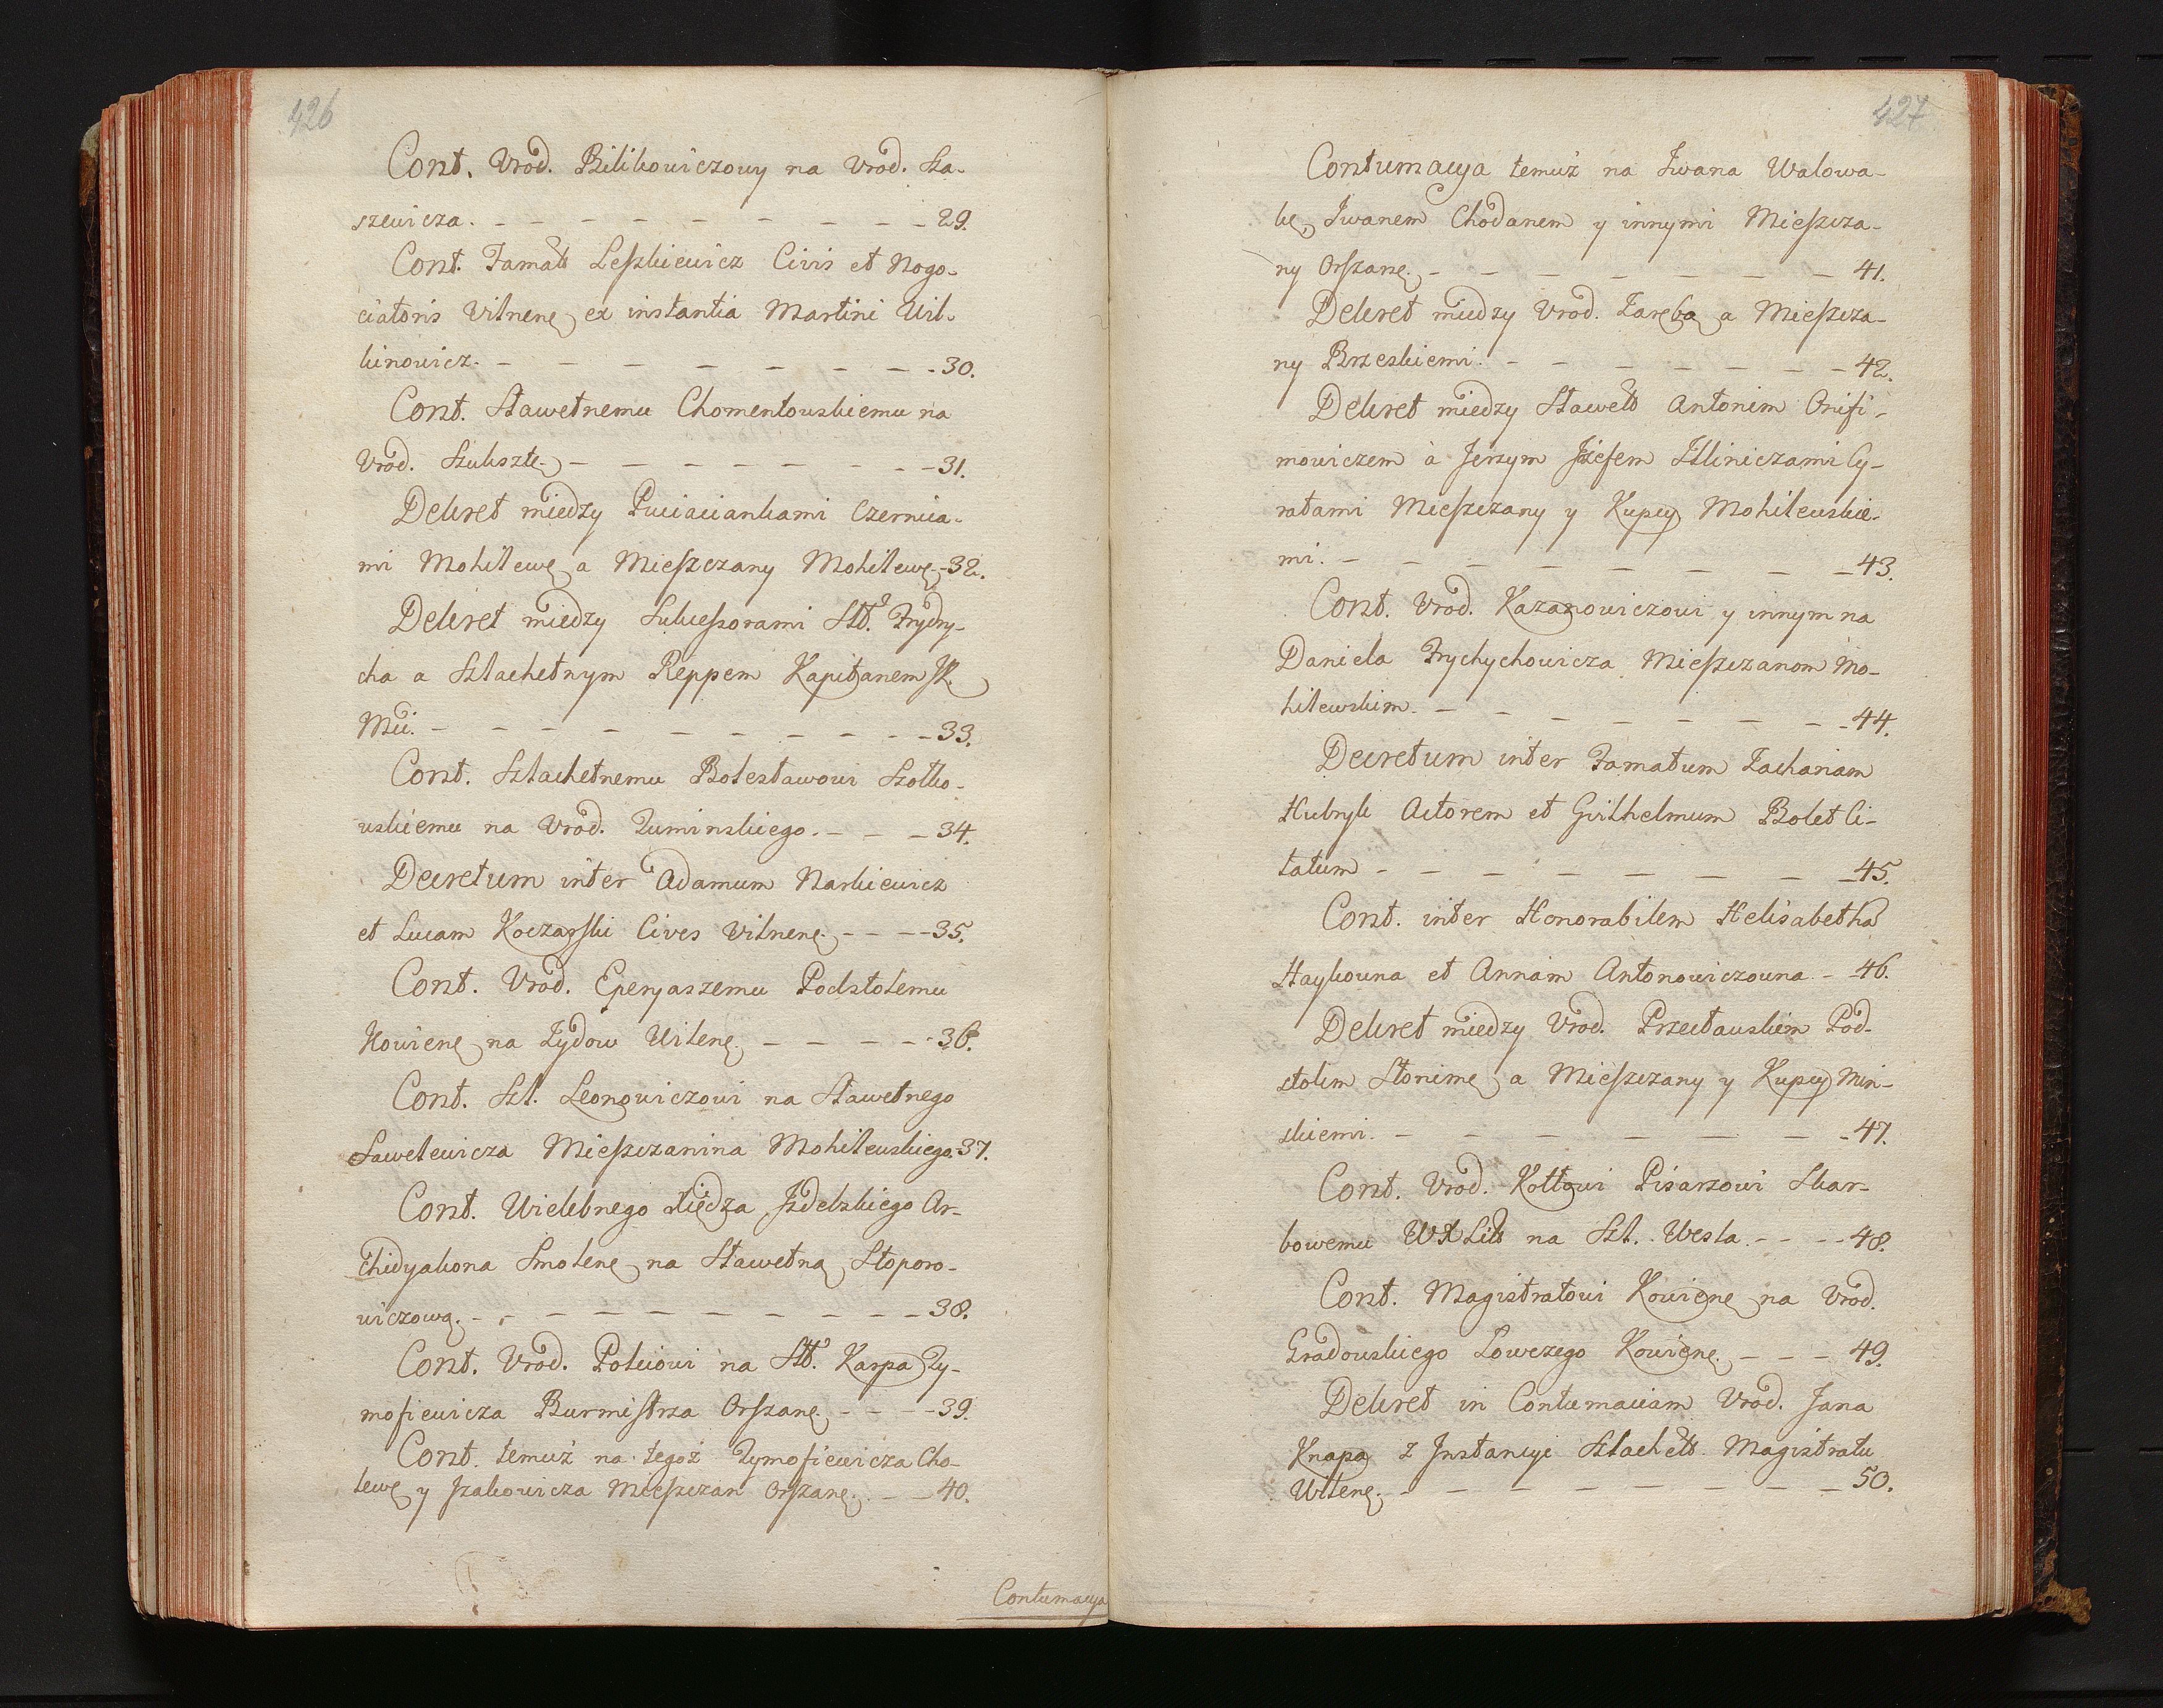 426
Cont. Vrod. Bilikowiczowy na Vrod. Sta-
szewicza. - - - - - - - - 29.
Cont. Famāti Leszkiewicz Civis et Nogo-
ciatoris Vilnenę ex instantia Martini Wil-
kinowicz. - - - - - - - - 30.
Cont. Sławetnemu Chomentowskiemu na
Vrod. Szuksztę - - - - - - - - 31.
Dekret między Puciaciankami Czernica-
mi Mohilewę a Mieszczany Mohilewę. - 32.
Dekret między Sukcessorami Słt. Frydry-
cha a Szlachetnym Reppem Kapitanem JK.
Mći. - - - - - - - - - 33.
Cont. Szlachetnemu Bolesławowi Szołko-
wskiemu na Vrod. Zuminskiego. - - - 34.
Decretum inter Adamum Narkiewicz
et Lucam Koczarski Cives Vilnenę. - - - - 35.
Cont. Vrod. Eperyaszemu Podstolemu
Kowienę na Żydow Wilenę. - - - - - 36.
Cont. Szl. Leonowiczowi na Sławetnego
Sawelewicza Mieszczanina Mohilewskiego. 37.
Cont. Wielebnego Xiędza Jzdebskiego Ar-
chidyakona Smolenę na Sławetną Stoporo-
wiczową. - - - - - - - - - 38.
Cont. Vrod. Pociowi na Słt. Karpa Ty-
mofiewicza Burmistrza Orszanę. - - - - 39.
Cont. temuż na tegoż Tymofiewicza Cho-
lewę y Jzakowicza Mieszczan Orszanę. - - 40.
Contumacya
427
Contumacya temuż na Jwana Walowa-
kę, Jwanem Chodanem y innymi Mieszcza-
ny Orszanę. - - - - - - - - 41.
Dekret między Vrod. Zarębą a Mieszcza-
ny Brzeskiemi. - - - - - - - 42.
Dekret między Sławet Antonim Onifi-
mowiczem à Jerzym Józefem Jlliniczami Cy-
ratami Mieszczany y Kupcy Mohilewskie-
mi. - - - - - - - - 43.
Cont. Vrod. Kazanowiczowi y innym na
Daniela Frychychowicza Mieszczanom Mo-
hilewskim. - - - - - - - - 44.
Decretum inter Famatum Zachariam
Hubryk Actorem et Gvilhelmum Bolet Ci-
tatum - - - - - - - - 45.
Cont. inter Honorabilem Helisabethā
Haykowna et Annam Antonowiczowna - 46.
Dekret między Vrod. Przecławskim Pod-
stolim Słonimę a Mieszczany y Kupcy Min-
skiemi. - - - - - - - 47.
Cont. Vrod. Kottowi Pisarzowi Skar-
bowemu WXLitt na Szl. Wesla. - - - - 48.
Cont. Magistratowi Kowienę na Vrod.
Gradowskiego Łowczego Kowienę. - - - 49.
Dekret in Contumaciam Vrod. Jana
Knapa z Jnstancyi Szlachett Magistratu
Wilenę. - - - - - - - - 50.